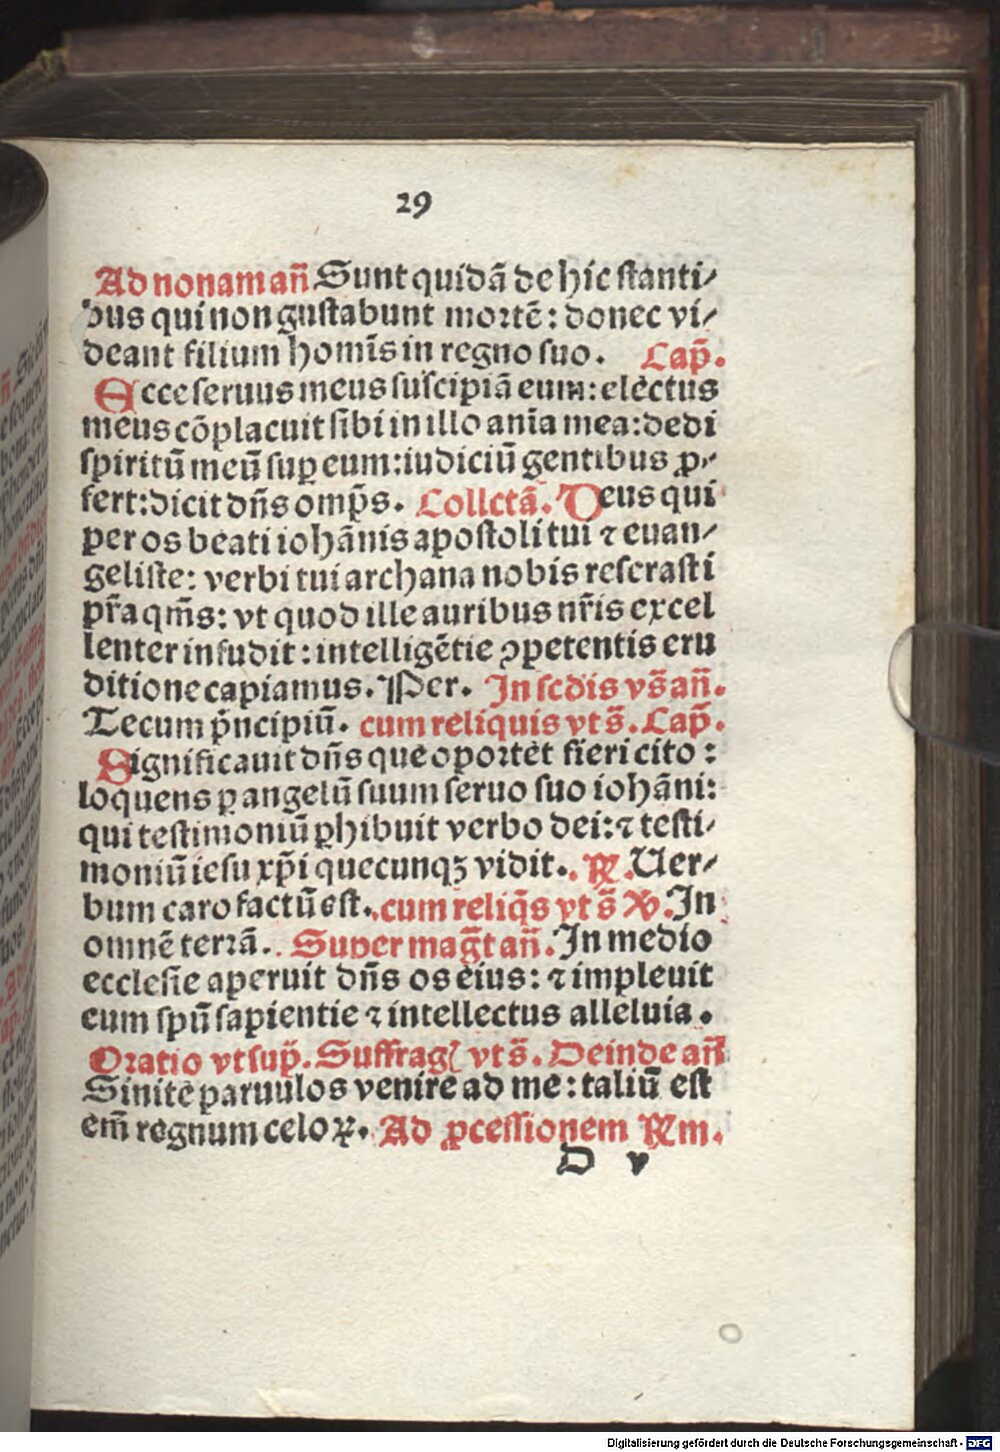 29
Ad nonam an̄ Sunt quidā de hic stanti/
bus qui non gustabunt mortē: donec vi/
deant filium homīs in regno suo. Cap̄.
Ecce seruus meus suscipiā eum: electus
meus cōplacuit sibi in illo anīa mea: dedi
spiritū meū suꝑ eum: iudiciū gentibus ꝓ/
fert: dicit dn̄s omp̄s. Collctā. Deus qui
per os beati iohānis apostoli tui ⁊ euan/
geliste: verbi tui archana nobis rescrasti
pr̄a qm̄s: vt quod ille auribus nr̄is excel
lenter infudit: intelligētie ꝯpetentis eru
ditione capiamus. Per. In scdis vs̄ an̄.
Tecum p̄ncipiū. cum reliquis vt s̄. Cap̄.
Significauit dn̄s que oportet fieri cito:
loquens ꝑ angelū suum seruo suo iohāni:
qui testimoniū ꝑhibuit verbo dei: ⁊ testi/
moniū iesu xp̄i quecunqꝫ vidit. ℟. Uer/
bum caro factū est. cum reliq̄s vt s̄ ℣. In
omnē terrā. Super mag̅t an̄. In medio
ecclesie aperuit dn̄s os eius: ⁊ impleuit
eum spū sapientie ⁊ intellectus alleluia.
Oratio vt sup̄. Suffrag vt s̄. Deinde an̄
Sinite paruulos venire ad me: taliū est
em̄ regnum celoꝝ. Ad ꝓcessionem ℟m.
D v
Digitalisierung gefördert durch die Deutsche Forschungsgemeinschaft - DFG